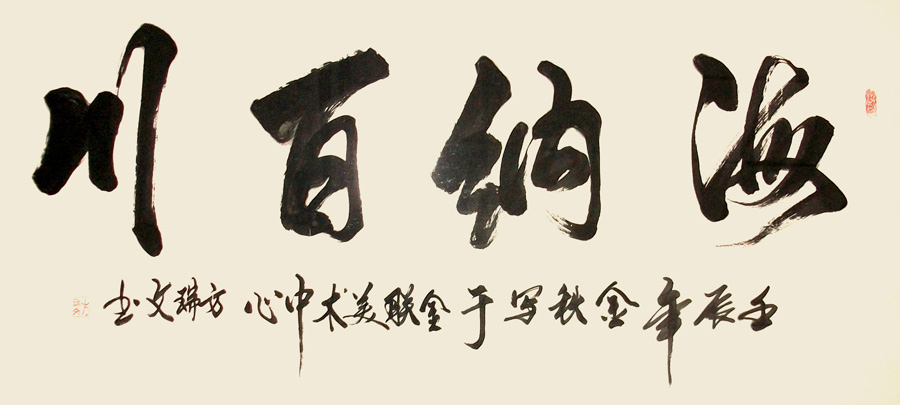 海纳百川
壬辰年金秋写于金联美术中心方瑞文书